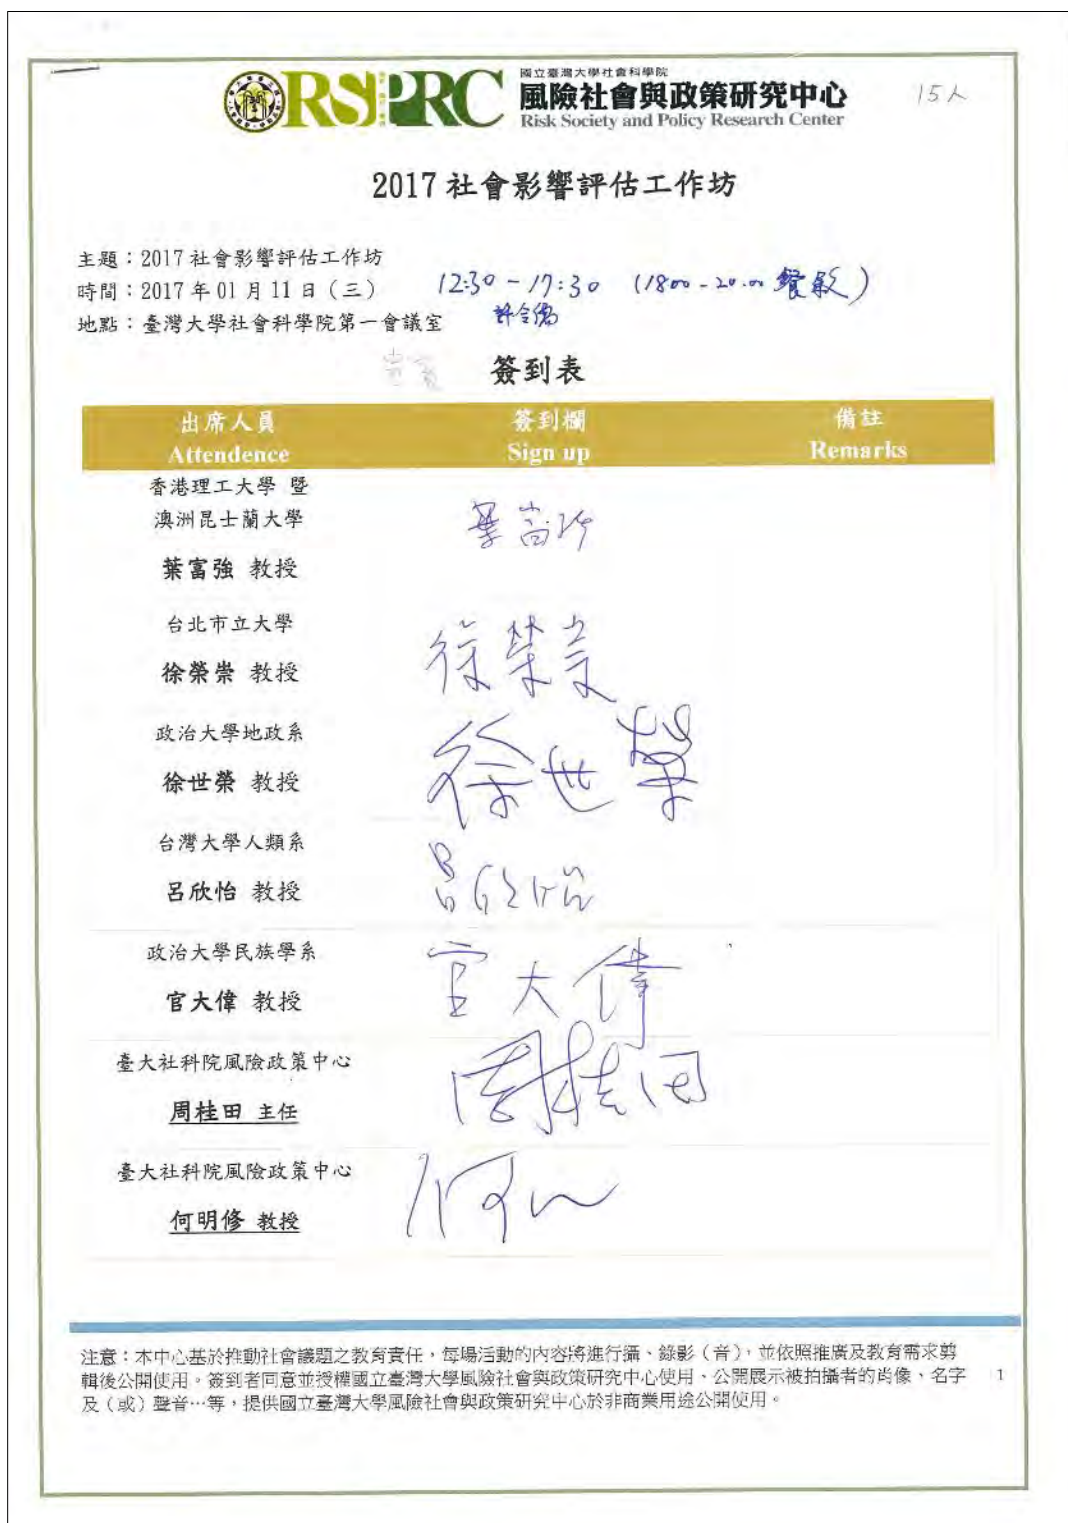 RSPRC
國立臺灣大學社會科學院
風險社會與政策研究中心
Risk Society and Policy Research Center
15人
2017 社會影響評估工作坊
主題：2017 社會影響評估工作坊
時間：2017 年 01 月 11 日（三）
12:30 - 17:30 (1800 - 20:00 餐敘)
地點：臺灣大學社會科學院第一會議室
簽到表
出席人員 簽到欄 備註
Attendence Sign up Remarks
香港理工大學 暨
澳洲昆士蘭大學
葉富強 教授
台北市立大學
徐榮崇 教授
徐榮崇
政治大學地政系
徐世榮 教授
徐世榮
台灣大學人類系
呂欣怡 教授
呂欣怡
政治大學民族學系
官大偉 教授
官大偉
臺大社科院風險政策中心
周桂田 主任
周桂田
臺大社科院風險政策中心
何明修 教授
注意：本中心基於推動社會議題之教育責任，每場活動的內容將進行攝、錄影（音），並依照推廣及教育需求剪
輯後公開使用。簽到者同意並授權國立臺灣大學風險社會與政策研究中心使用、公開展示被拍攝者的肖像、名字
及（或）聲音…等，提供國立臺灣大學風險社會與政策研究中心於非商業用途公開使用。
1